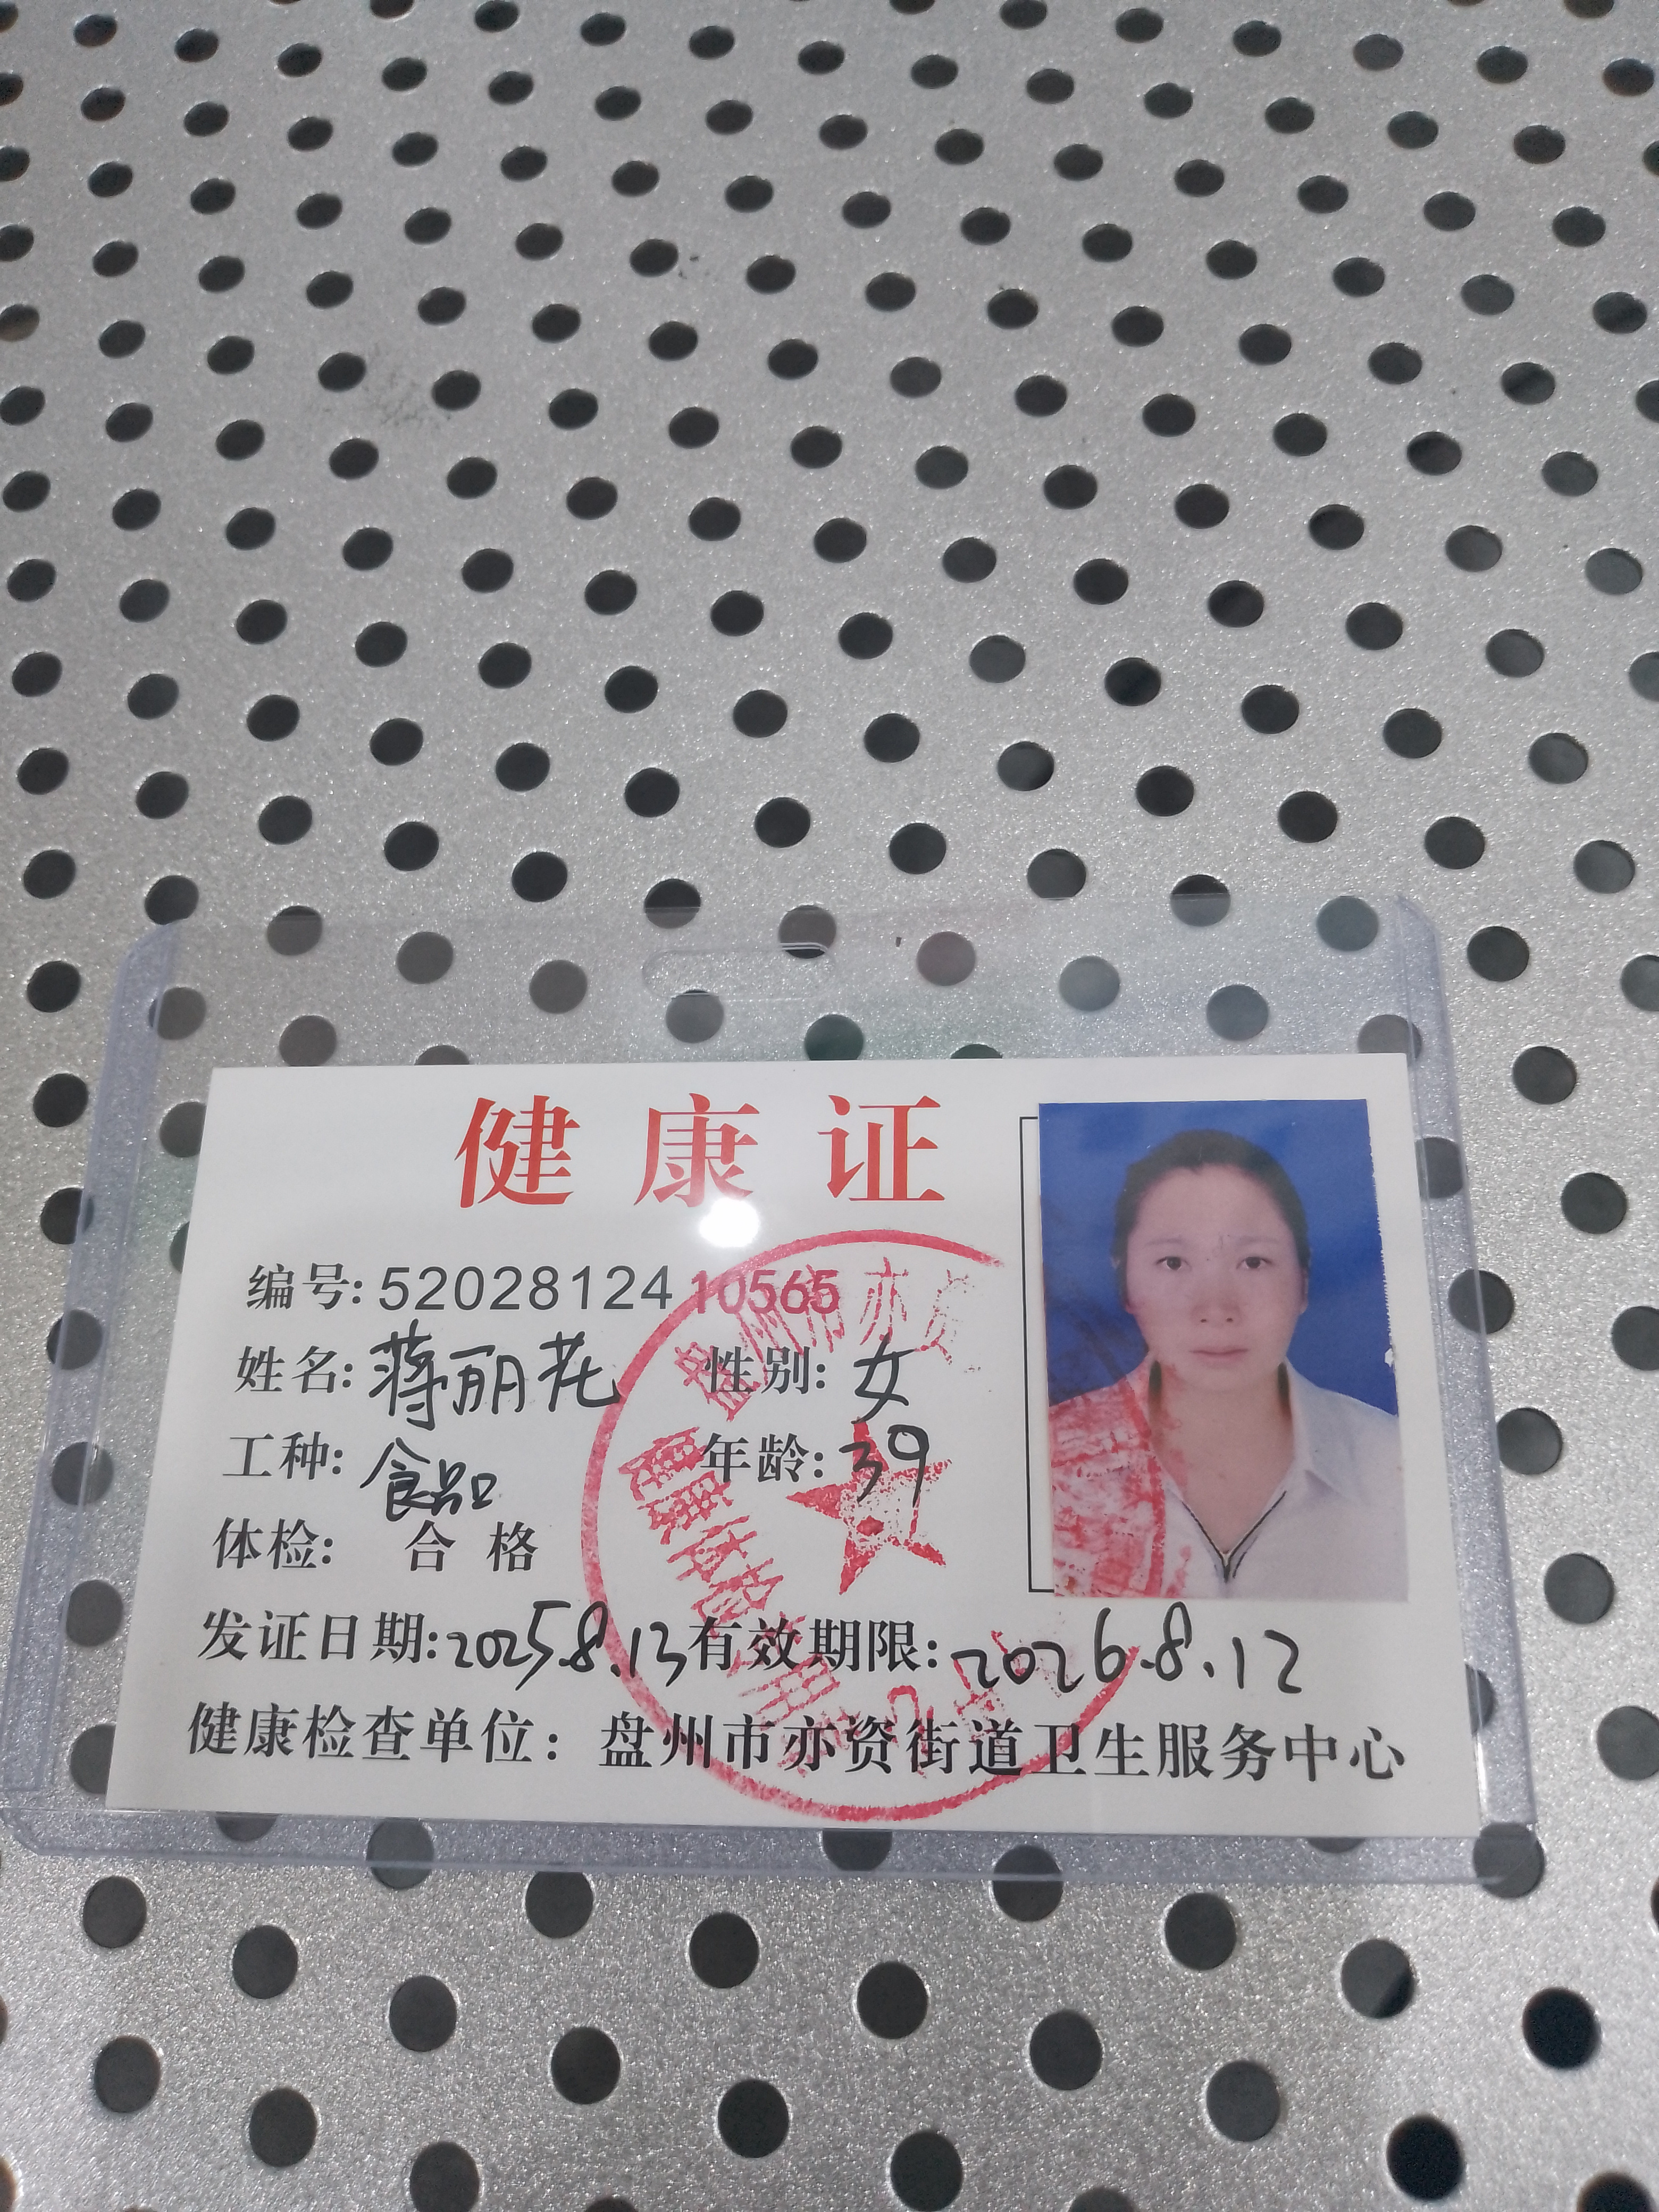 健康证
编号: 5202812410565
姓名: 蒋丽花 性别: 女
工种: 食品 年龄: 39
体检: 合格
发证日期: 2025.8.13 有效期限: 2026.8.12
健康检查单位：盘州市亦资街道卫生服务中心
盘州市亦资
健康体检